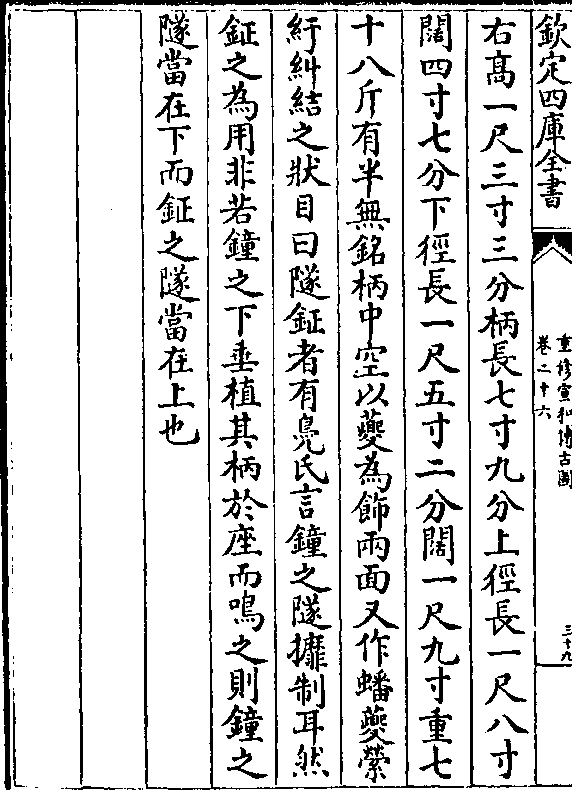 欽定四庫全書
重修宣和博古圖
卷二十六
三十九
右高一尺三寸三分柄長七寸九分上徑長一尺八寸
闊四寸七分下徑長一尺五寸二分闊一尺九寸重七
十八斤有半無銘柄中空以夔為飾兩面又作蟠夔縈
紆糾結之狀目曰隧鉦者有鳧氏言鐘之隧攠制耳然
鉦之為用非若鐘之下垂植其柄於座而鳴之則鐘之
隧當在下而鉦之隧當在上也